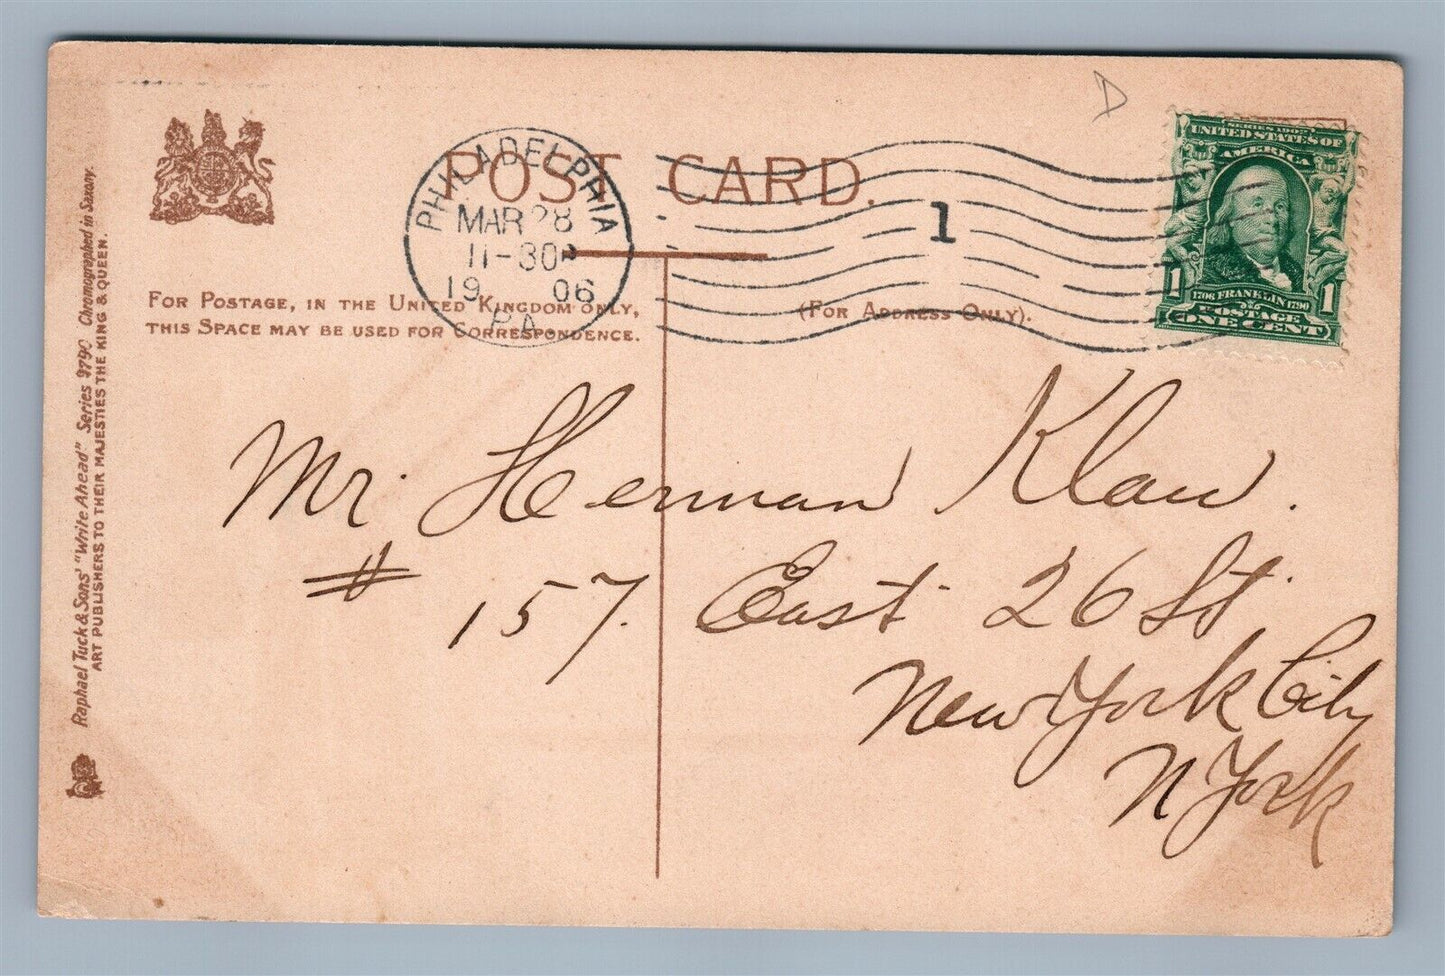 D
POST CARD.
PHILADELPHIA
MAR 28
11-30P
19 06
PA.
1
SERIES 1902
UNITED STATES OF
AMERICA
1706 FRANKLIN 1790
POSTAGE
1 ONE CENT 1
FOR POSTAGE, IN THE UNITED KINGDOM ONLY,
THIS SPACE MAY BE USED FOR CORRESPONDENCE.
(FOR ADDRESS ONLY).
Mr. Herman Klaw.
# 157. East 26 St.
New York City
N York
Raphael Tuck & Sons' "Write Ahead" Series 9790 Chromographed in Saxony.
ART PUBLISHERS TO THEIR MAJESTIES THE KING & QUEEN.